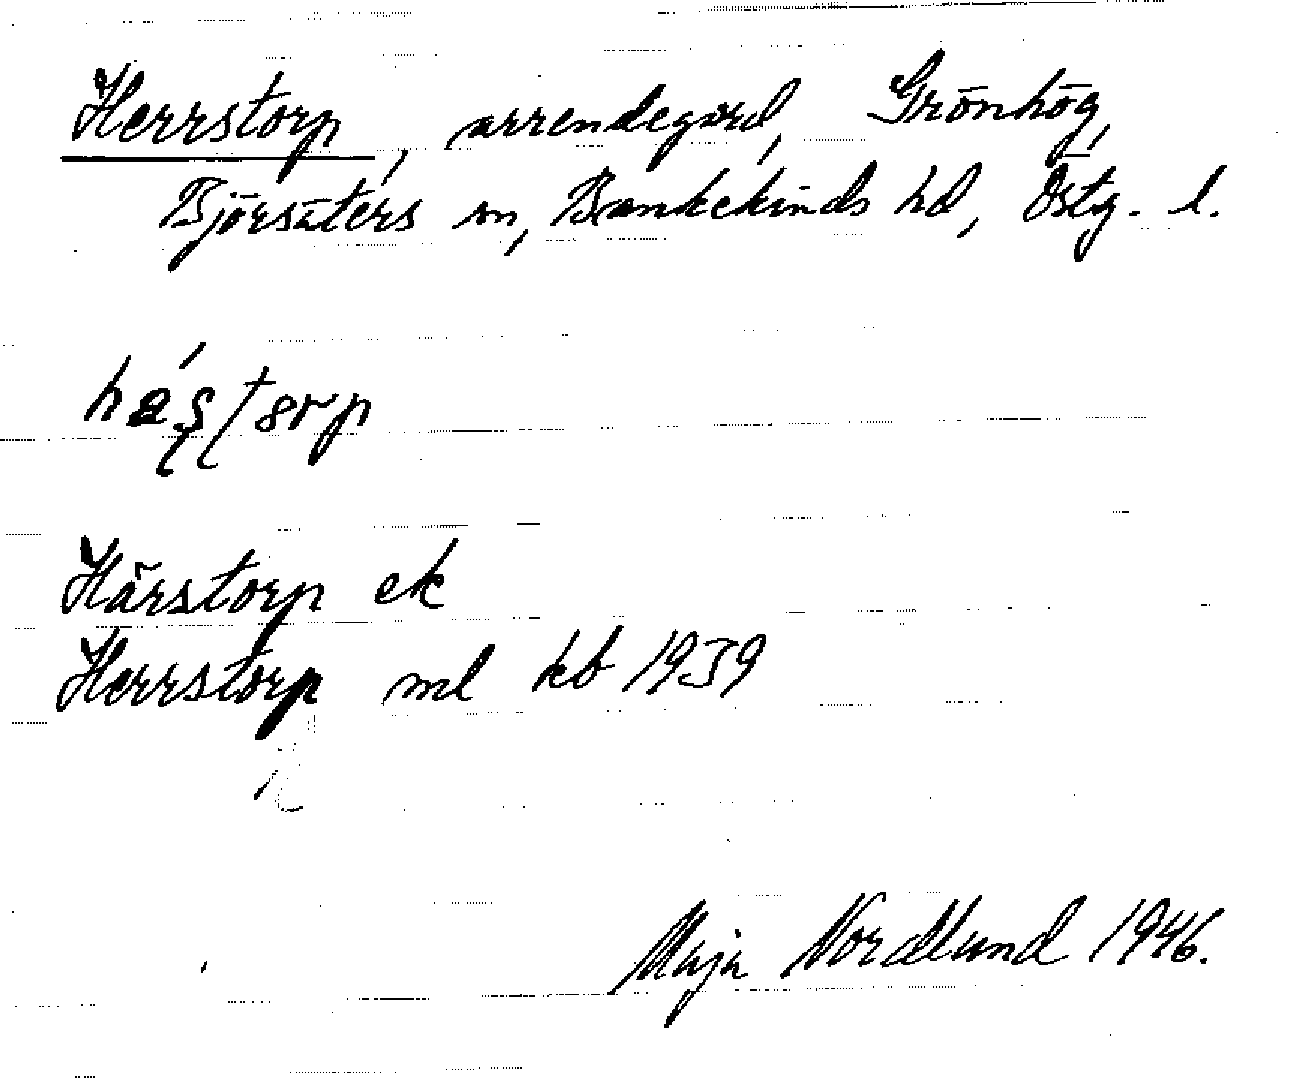 Herrstorp, arrendegård, Grönhög,
Bjärsäters sn, Bankekinds hd, Östg. l.
Härstorp ek
Herrstorp ml kb 1939
Maja Nordlund 1946.